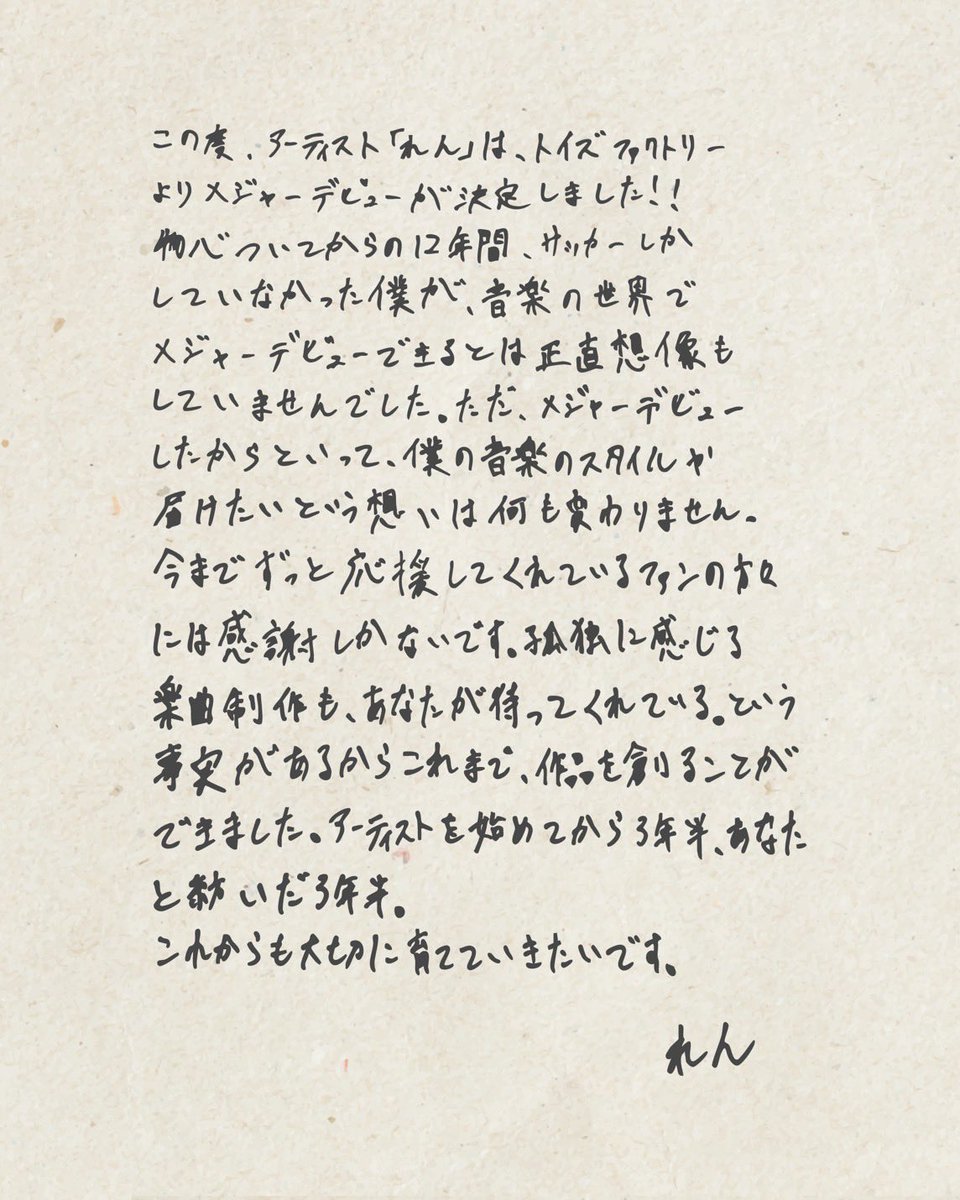 この度、アーティスト「れん」は、トイズファクトリー
よりメジャーデビューが決定しました!!
物心ついてからの12年間、サッカーしか
していなかった僕が、音楽の世界で
メジャーデビューできるとは正直想像も
していませんでした。ただ、メジャーデビュー
したからといって、僕の音楽のスタイルや
届けたいという想いは何も変わりません。
今までずっと応援してくれているファンの方々
には感謝しかないです。孤独に感じる
楽曲制作も、あなたが待ってくれている。という
事実があるからこれまで、作品を創ることが
できました。アーティストを始めてから3年半、あなた
と紡いだ3年半。
これからも大切に育てていきたいです。
れん